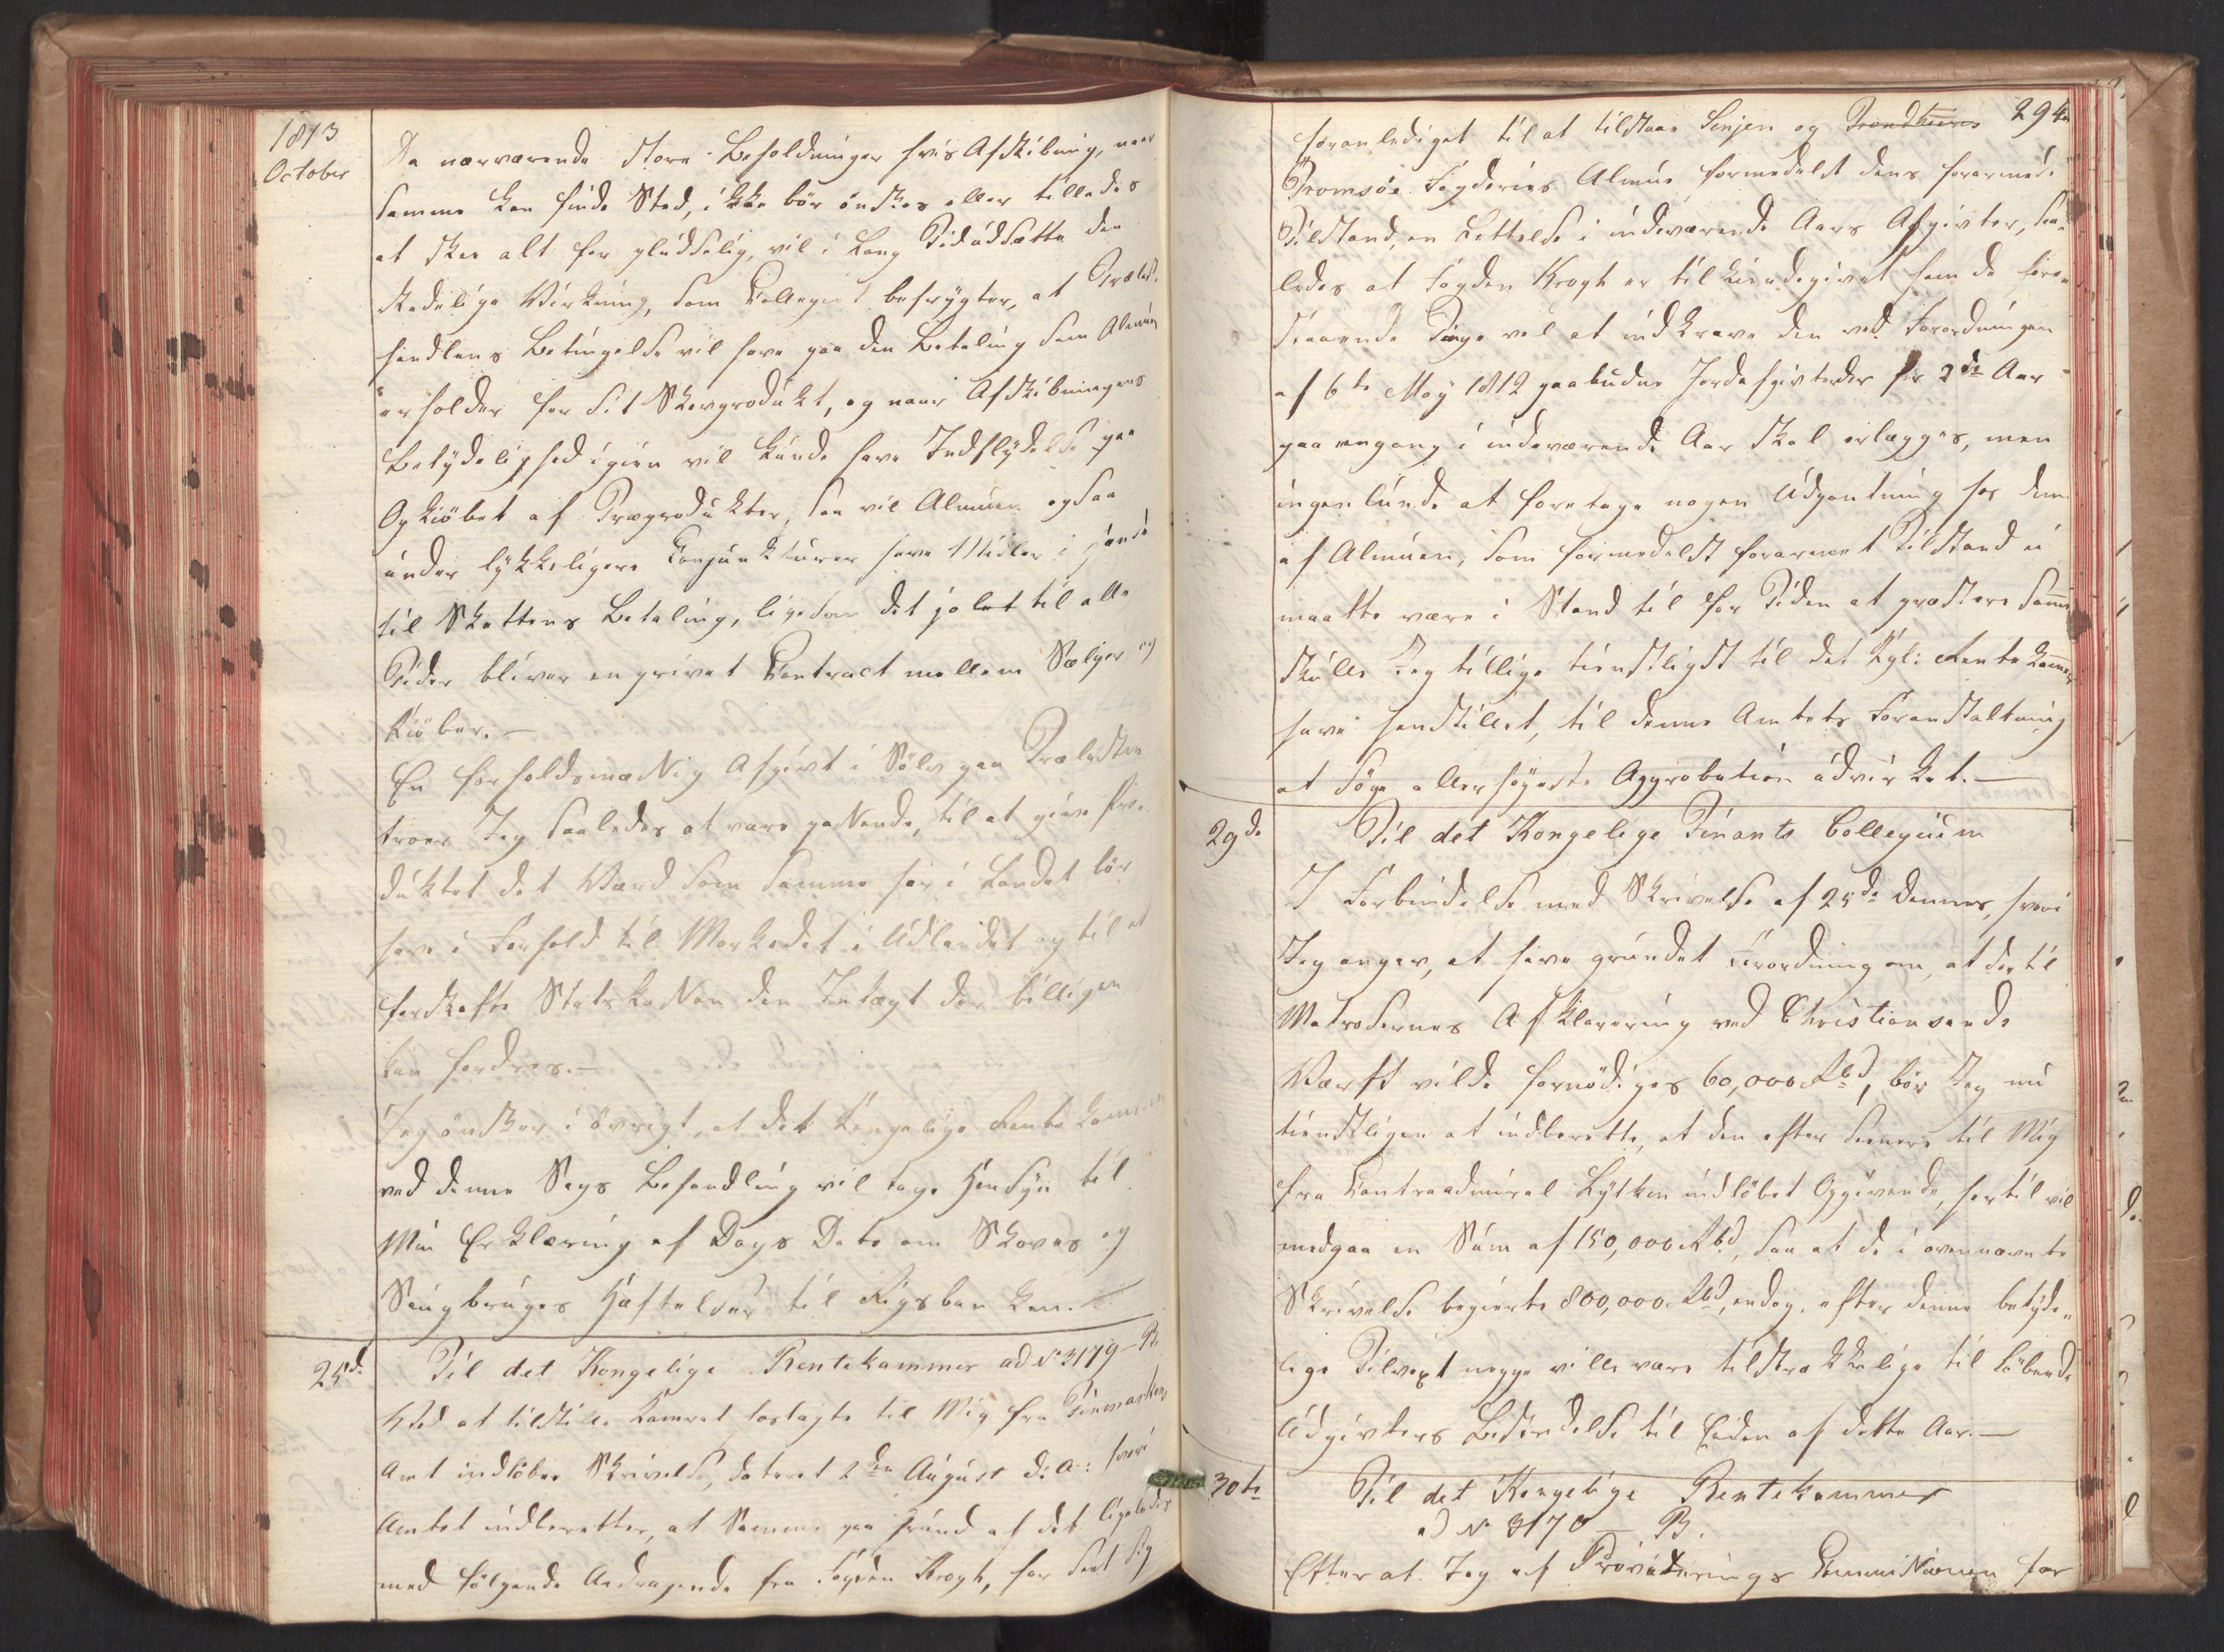 1813
October
Da nærværende store Beholdninger hvis Afskibning, naar
samme kan finde Sted, ikke bör önskes eller tillades
at skee alt for pludselig, vil i Lang Tid udsætte den
skadelige Virkning, som Collegiet befrygter, at Trælast-
handlens Betingelse vil have paa den Betaling som Almuen
erholder for sit Skovprodukt, og naar Afskibningens
Betydelighed igien vil kunde have Indflydelse paa
Opkiöbet af Træprodukter, saa vil Almuen ogsaa
under lykkeligere Conjunkturer have Midler i hænde
til Skattens Betaling, ligesom det jo til alle
Tider bliver en privat Contract mellem Sælger og
Kiöber.—
En forholdsmæssig Afgivt i Sölv paa Trælasten
troer Jeg saaledes at være passende, til at give Pro-
duktet det Værd som samme her i Landet bör
have i Forhold til Markedet i Udlandet og til at
forskaffe Statskassen den Intægt der billigen
kan fordres.—
Jeg önsker i övrigt, at det Kongelige Rentekammer
ved denne Sags Behandling vil tage Hensyn til
Min Erklæring af Dags Dato om Skoves og
Saugbruges Hæftelser til Rigsbanken.
25de
Til det Kongelige Rentekammer ad No 3179 – B.
Ved at tilstille Kamret hoslagte til Mig fra Finmarkens
Amt indlöbne Skrivelse, dateret 2den August d: A: hvori
Amtet indberetter, at Samme paa Grund af det ligeledes
med fölgende Andragende fra Fogden Krogh, har seet sig
294
foranlediget til at tilstaae Senjen og Trondhiems
Tromsöe Fogderies Almue formedelst dens forarmede
Tilstand, en Lettelse i indeværende Aars Afgivter, saa-
ledes at Fogden Krogh er tilkiendegivet ham de fore-
staaende Tinge vel at indkræve den ved Forordningen
af 6te May 1812 paabudne Jordafgivt for 2de Aar
paa engang i indeværende Aar skal erlægges, men
ingenlunde at foretage nogen Udpantning hos dem
af Almuen, som formedelst forarmet Tilstand ei
maatte være i Stand til for Tiden at præstere samme
skulle Jeg tillige tienstligst til det Kgl: Rentekammer
have henstillet, til denne Amtets Foranstaltning
at söge allerhöyeste Approbation udvirket.—
29de
Til det Kongelige Finants Collegium
I Forbindelse med Skrivelse af 25de dennes, hvori
Jeg angav, at have grundet Formodning om, at der til
Matrosernes Afklarering ved Christiansands
Værft vilde fornödiges 60,000 Rbd, bör Jeg nu
tienstligen at indberette, at den efter seenere til Mig
fra Contraadmiral Lütken indlöbet Opgivende, hertil vil
medgaa en Sum af 150,000 Rbd, saa at de i ovennævnte
Skrivelse begierte 800,000 Rbd, endog efter denne betyde-
lige Tilvext neppe ville være tilstrækkelige til löbende
Udgivters Bestridelse til Enden af dette Aar.—
30te
Til det Kongelige Rentekammer
ad No 3170 – B.
Efter at Jeg af Provideerings Commissionen har